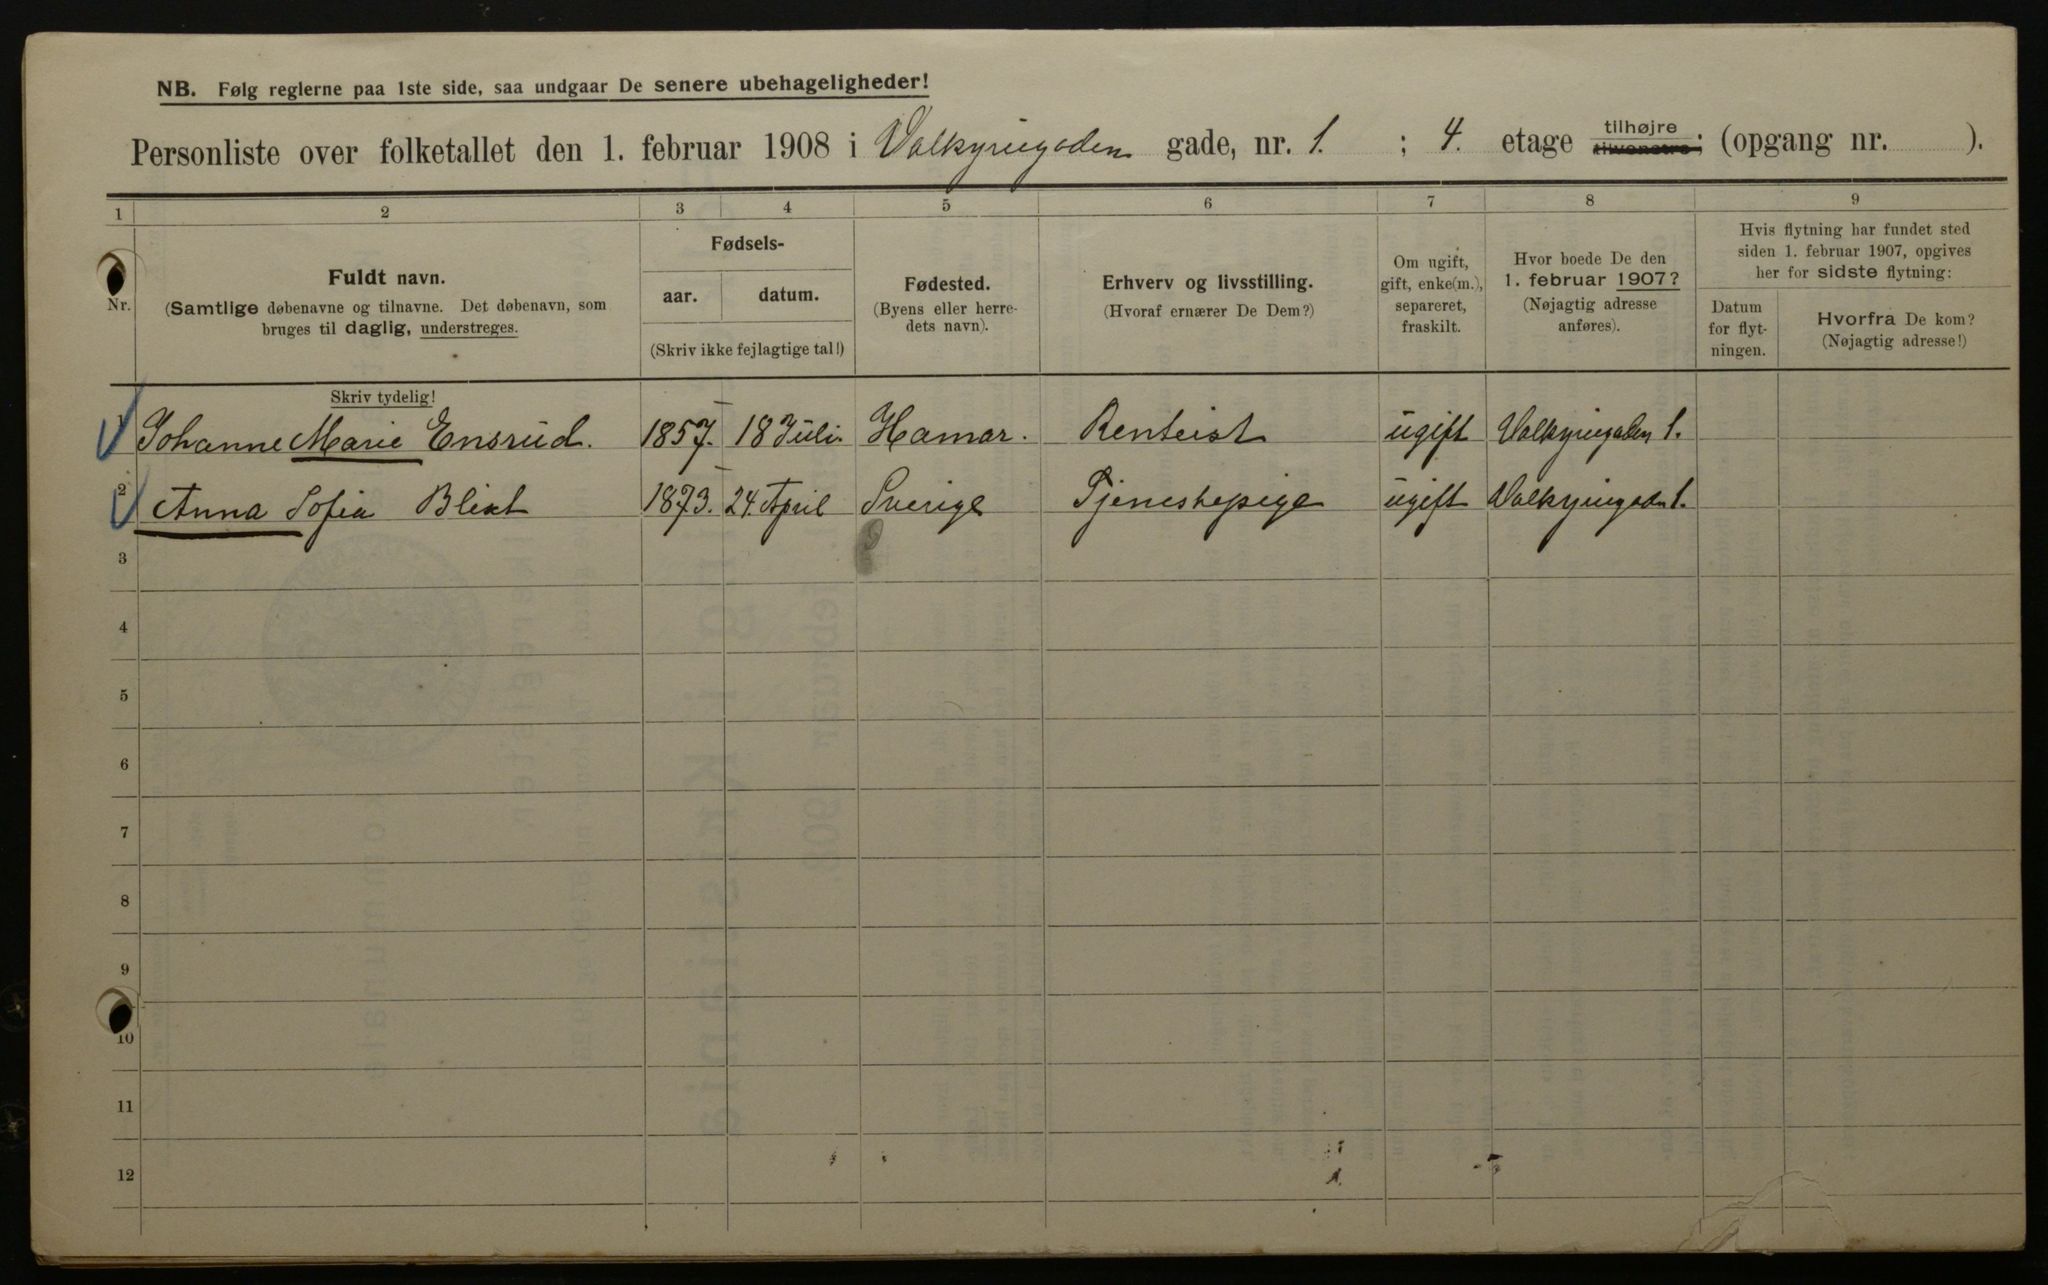 NB. Følg reglerne paa 1ste side, saa undgaar De senere ubehageligheder!
Personliste over folketallet den 1. februar 1908 i Valkyriegaden gade, nr. 1. ; 4. etage tilhøjre tilvenstre; (opgang nr. ).
1 2 3 4 5 6 7 8 9
Nr.
Fuldt navn.
(Samtlige døbenavne og tilnavne. Det døbenavn, som
bruges til daglig, understreges.
Fødsels-
aar. datum.
(Skriv ikke fejlagtige tal!)
Fødested.
(Byens eller herre-
dets navn).
Erhverv og livsstilling.
(Hvoraf ernærer De Dem?)
Om ugift,
gift, enke(m.),
separeret,
fraskilt.
Hvor boede De den
1. februar 1907?
(Nøjagtig adresse
anføres).
Hvis flytning har fundet sted
siden 1. februar 1907, opgives
her for sidste flytning:
Datum
for flyt-
ningen.
Hvorfra De kom?
(Nøjagtig adresse!)
Skriv tydelig!
1 Johanne Marie Ensrud. 1857. 18 Juli. Hamar. Renteist ugift Valkyriegaden 1.
2 Anna Sofia Blixt 1873. 24. April Sverige Tjenestepige ugift Valkyriegadn 1.
3
4
5
6
7
8
9
10
11
12